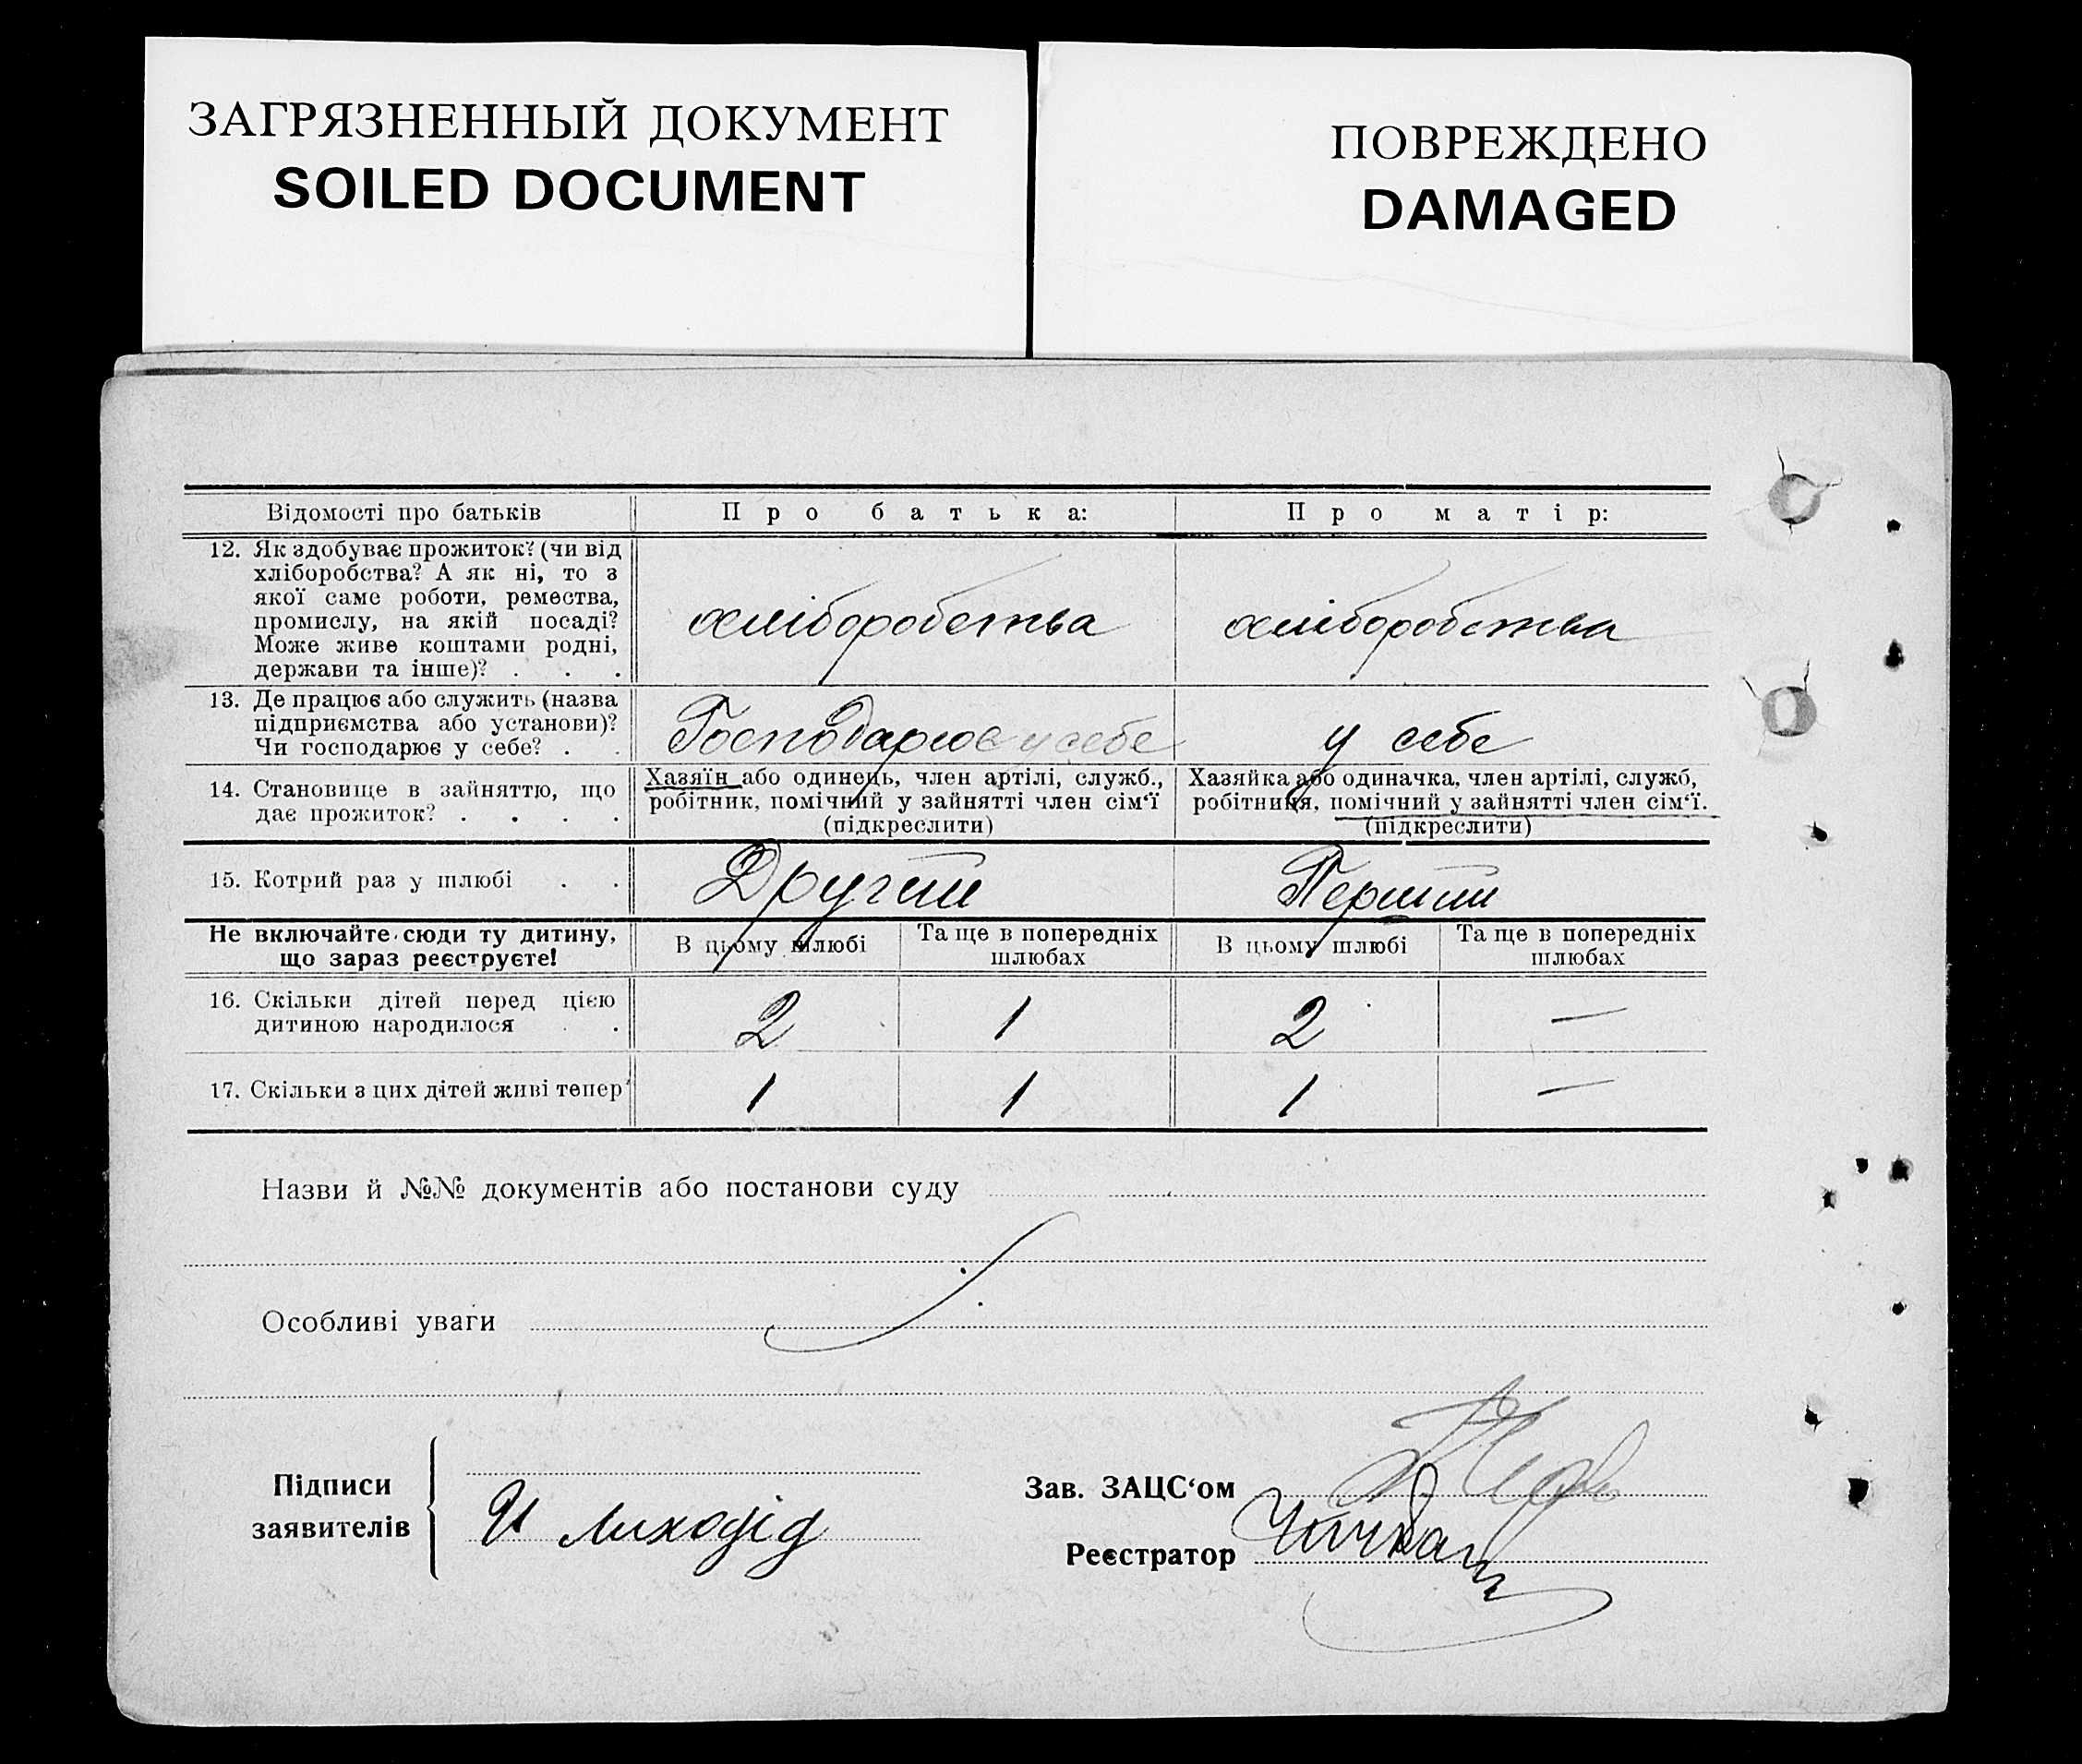 ЗАГРЯЗНЕННЫЙ ДОКУМЕНТ
SOILED DOCUMENT
ПОВРЕЖДЕНО
DAMAGED
Відомості про батьків
Про батька:
Про матір:
12. Як здобуває прожиток? (чи від
хліборобства? А як ні, то з
якої саме роботи, ремества,
промислу, на якій посаді?
Може живе коштами родні,
держави та інше)? . . .
хліборобства
хліборобства
13. Де працює або служить (назва
підприємства або установи)?
Чи господарює у себе? . .
Господарює у себе
у себе
14. Становище в зайняттю, що
дає прожиток? . . . .
Хазяїн або одинець, член артілі, служб.,
робітник, помічний у зайнятті член сім‘ї
(підкреслити)
Хазяйка або одиначка, член артілі, служб,
робітниця, помічний у зайнятті член сім‘ї.
(підкреслити)
15. Котрий раз у шлюбі . .
Другий
Перший
Не включайте сюди ту дитину,
що зараз реєструєте!
В цьому шлюбі
Та ще в попередніх
шлюбах
В цьому шлюбі
Та ще в попередніх
шлюбах
16. Скільки дітей перед цією
дитиною народилося . .
2
1
2
—
17. Скільки з цих дітей живі тепер
1
1
1
—
Назви й №№ документів або постанови суду
Особливі уваги
Підписи
заявителів
И Лиходід
Зав. ЗАЦС‘ом
Реєстратор